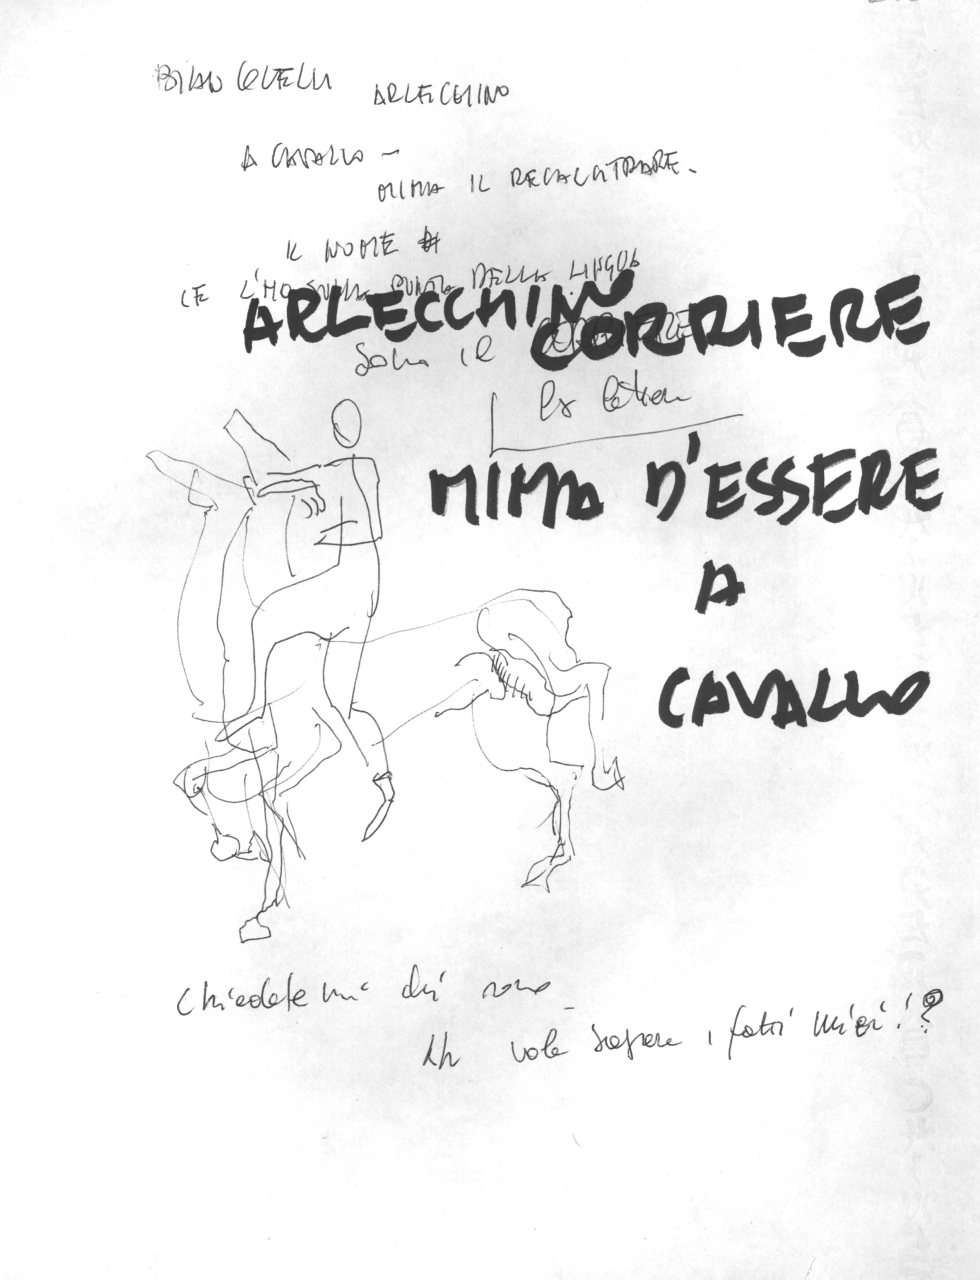 ARLECCHINO
A CAVALLO -
MIMA IL RECALCITRARE.
IL NOME
CE L'HO SULLA PUNTA DELLA LINGUA
ARLECCHIN CORRIERE
Sono il CORRIERE
MIMA D'ESSERE
A
CAVALLO
Chiedetemi chi sono
Ah vole sapere i fatti miei!?